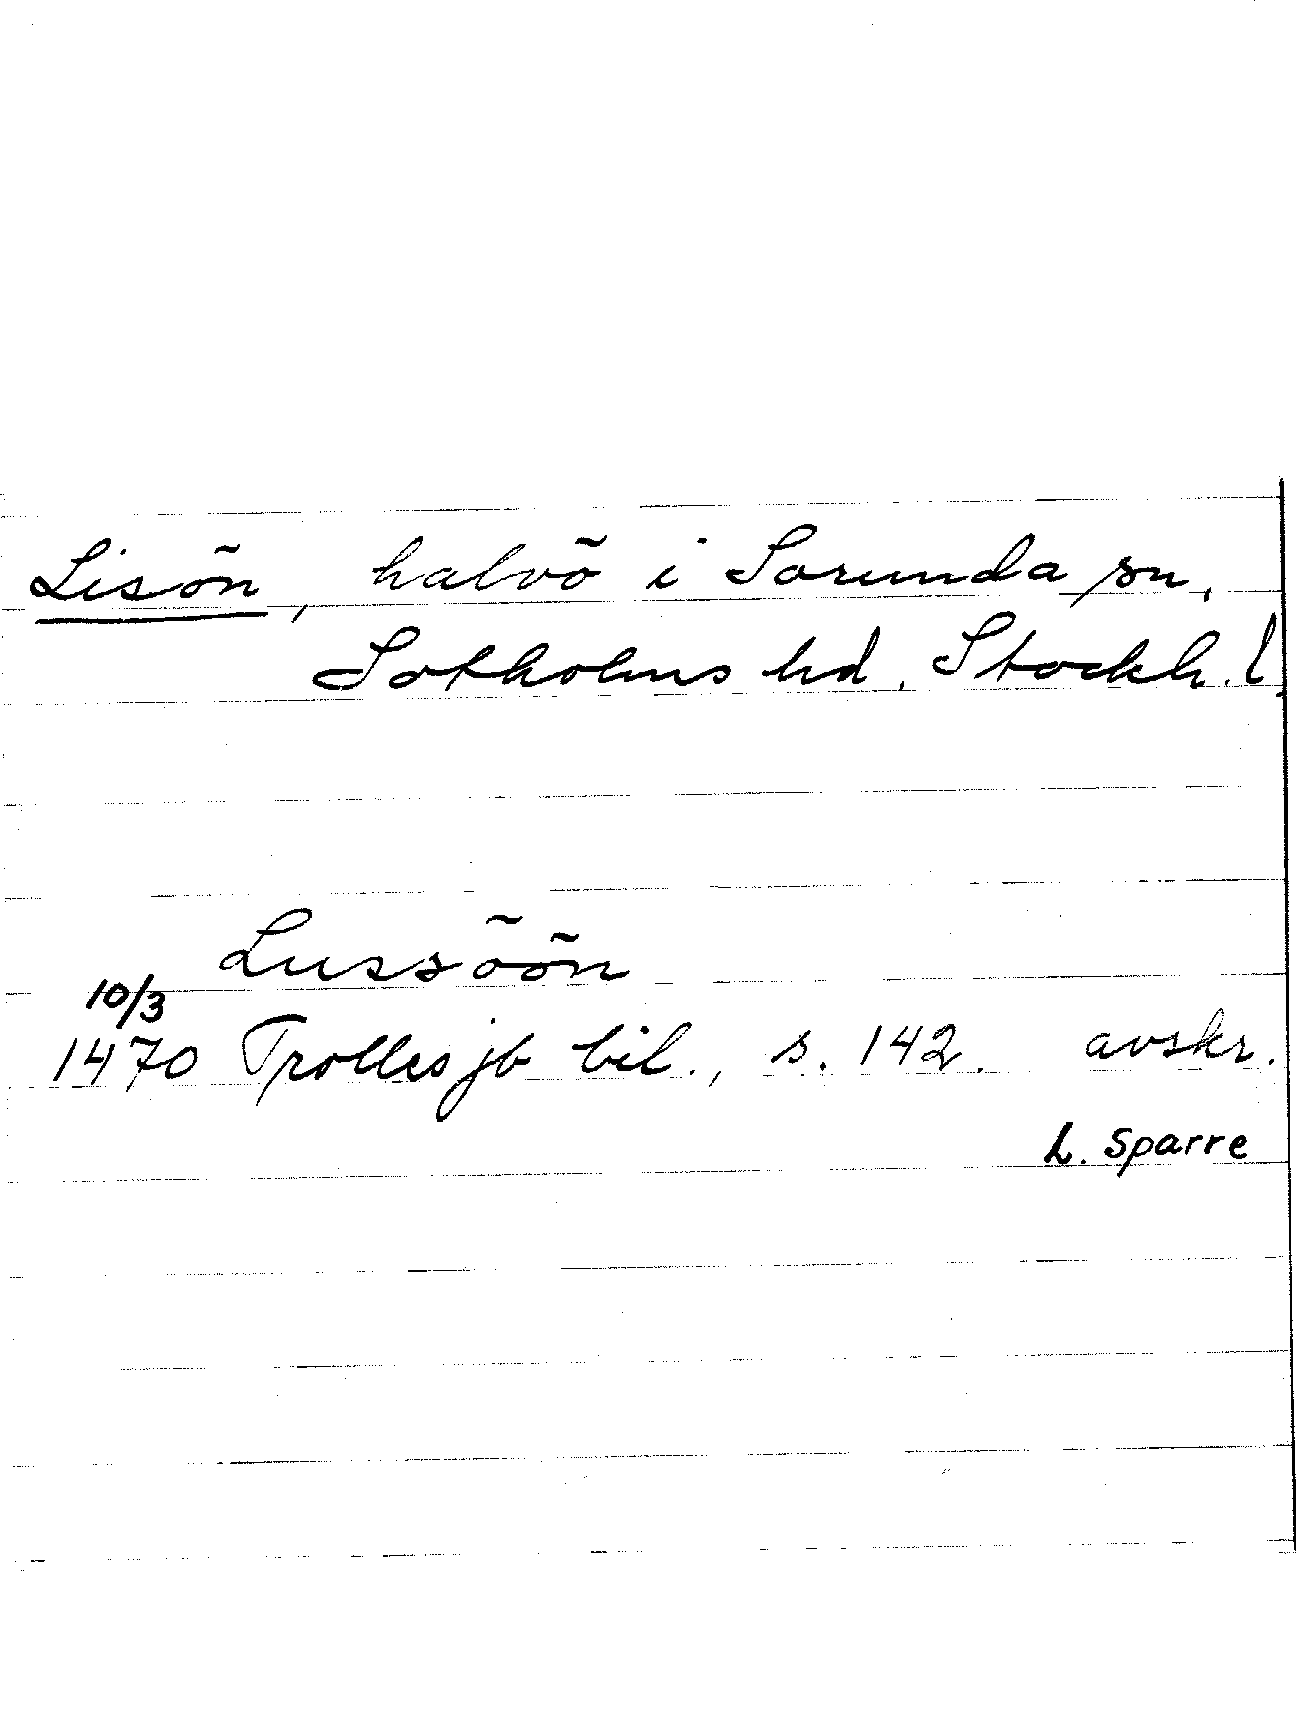 Lisön, halvö i Sorunda sn,
Sotholms hd, Stockh. l.
Lussöön
10/3
1470 Trolles jb bil., s. 142. avskr.
L. Sparre